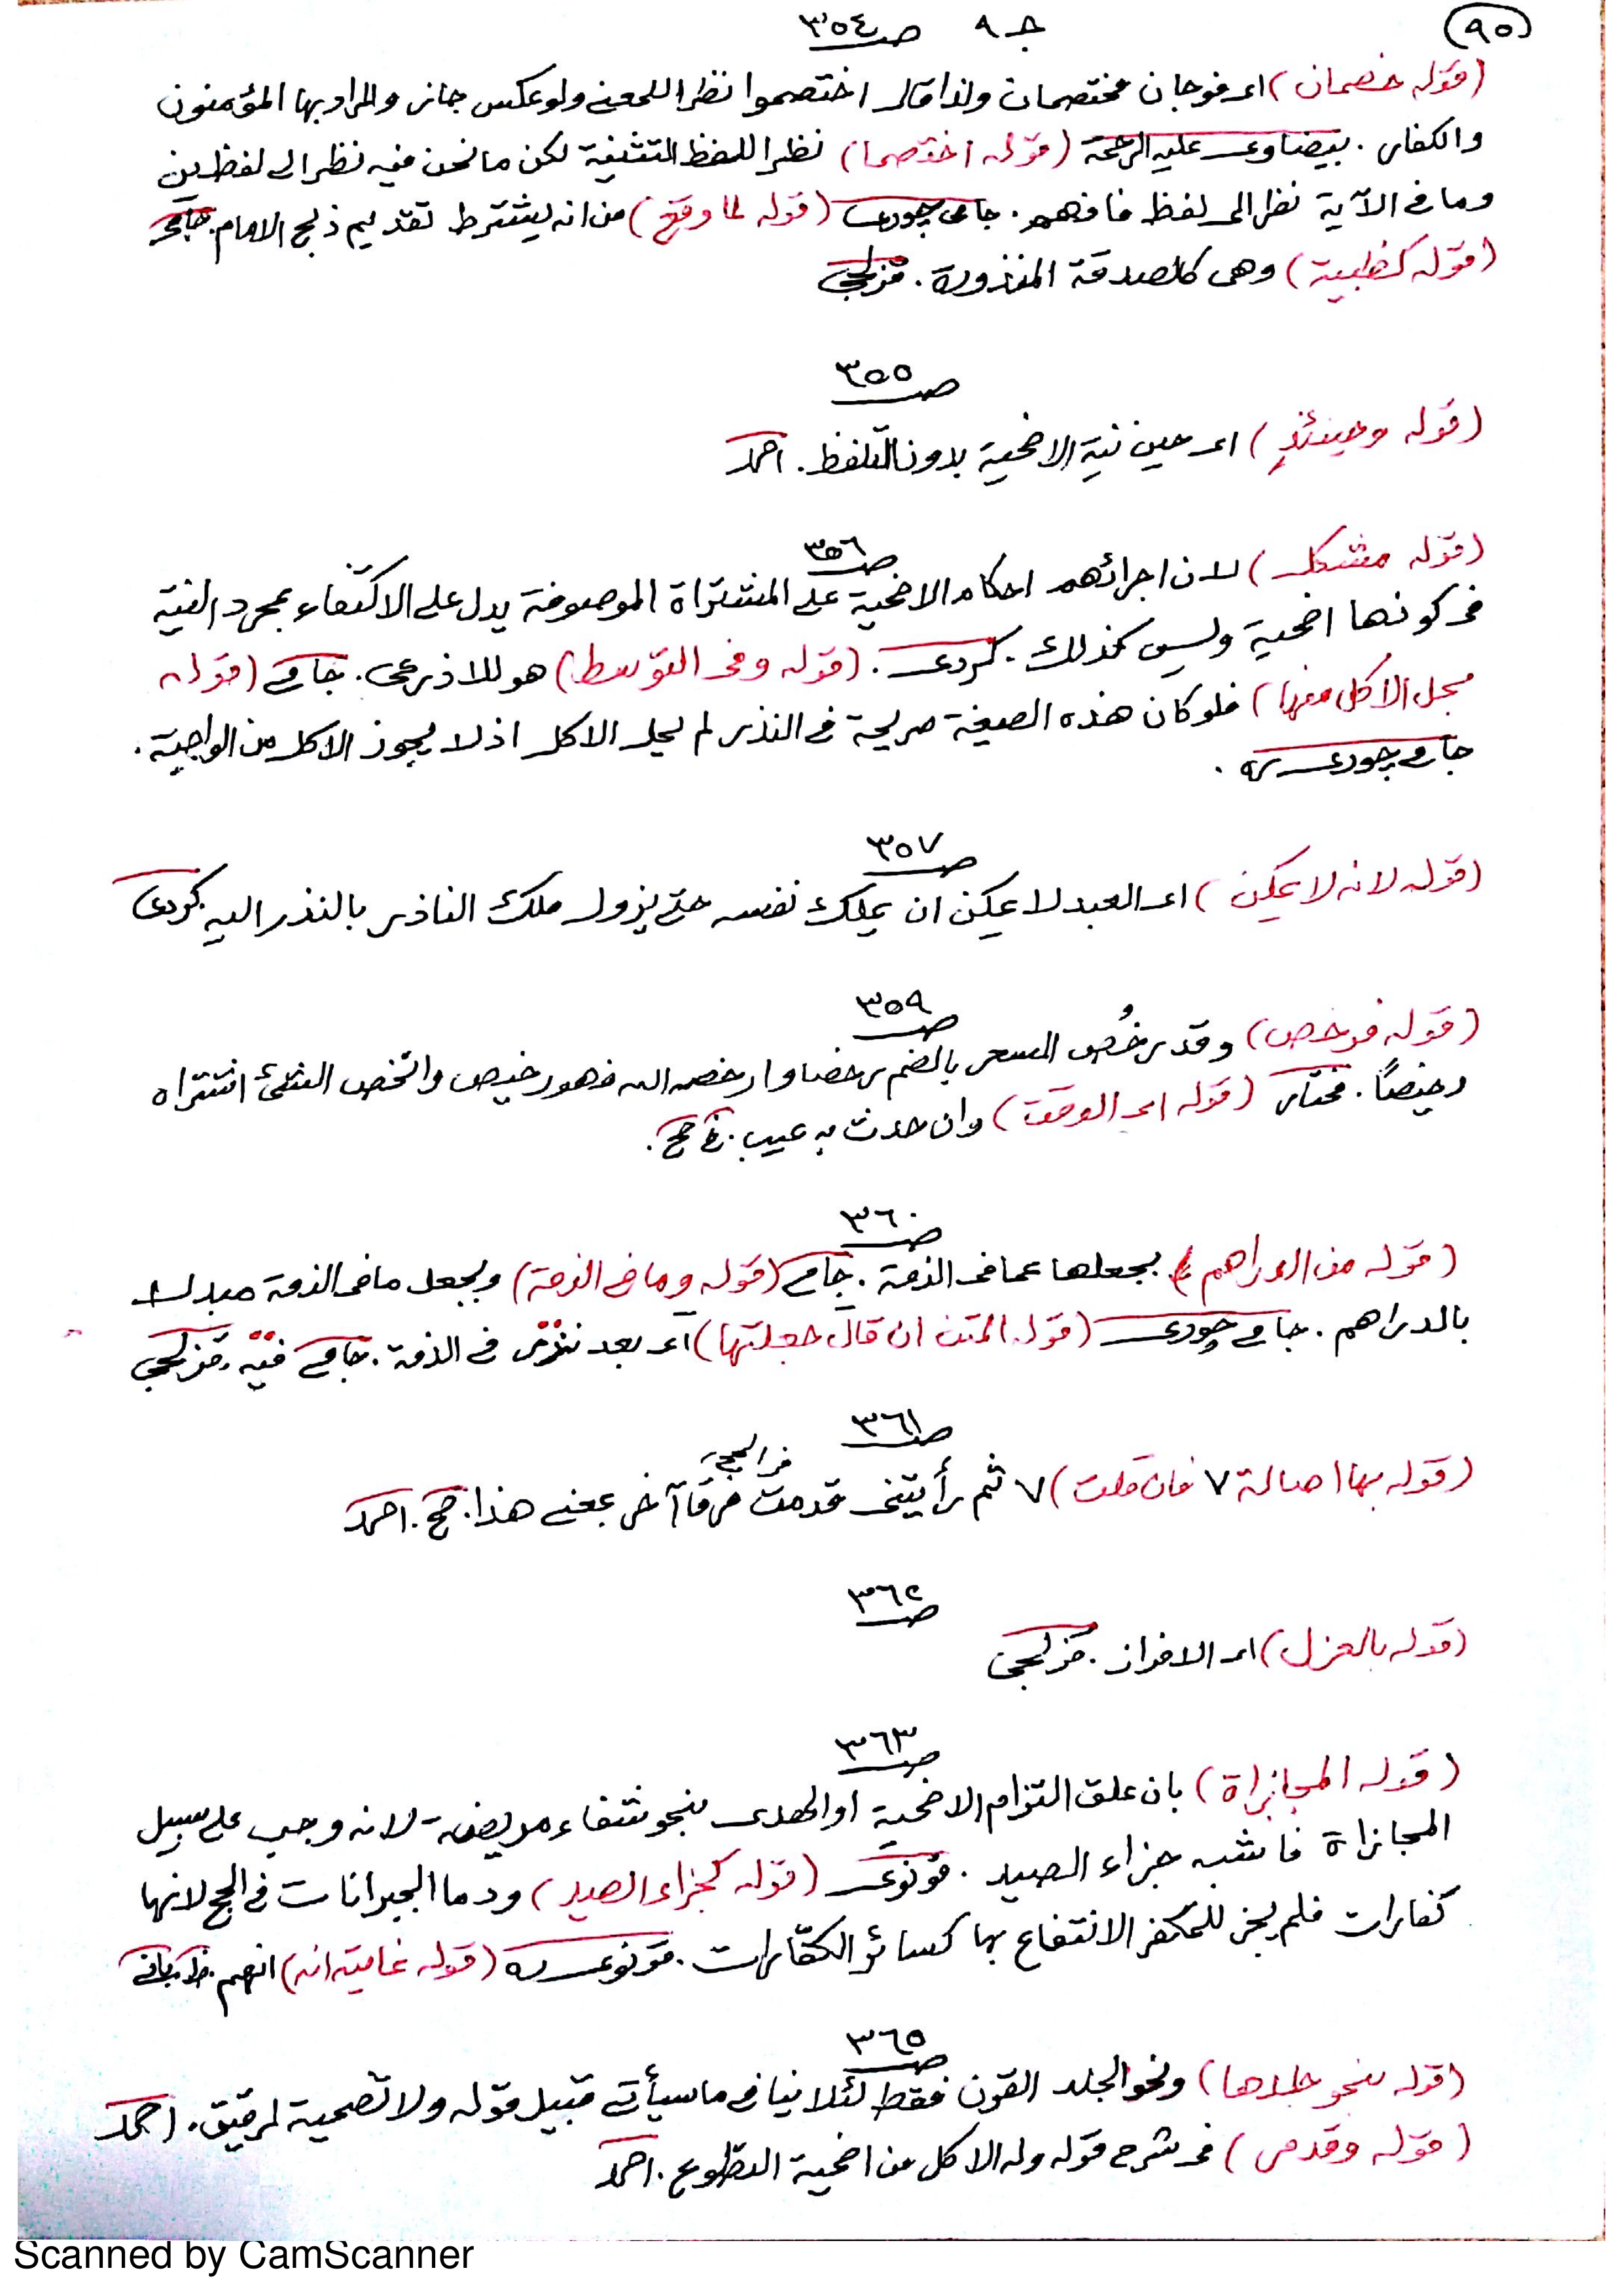 (٩٥)
جـ ٩ صـ ٣٥٤
(قوله خصمان) اى فوجان مختصمان ولذا قال اختصموا نظرا للمعنى ولو عكس جاز والمراد بها المؤمنون
والكفار. بيضاوى عليه الرحمة (قوله اختصما) نظرا للفظ التثنية لكن ما نحن فيه نظر الى لفظين
وما فى الآية نظر الى لفظ فافهم. جامى چورى (قوله لما وقع) من انه يشترط تقديم ذبح الامام. جامى
(قوله كخطبية) وهى كالصدقة المنذورة. قزلجى
صـ ٣٥٥
(قوله وحينئذٍ) اى حين نية الاضحية بدون التلفظ. احمد
صـ ٣٥٦
(قوله مشكل) لان اجرائهم احكام الاضحية على المشتراة الموصوفة يدل على الاكتفاء بمجرد النية
فى كونها اضحية وليس كذلك. كردى. (قوله وفى التوسط) هو للاذرعى. جامى (قوله
يحل الاكل منها) فلو كان هذه الصيغة صريحة فى النذر لم يحل الاكل اذ لا يجوز الاكل من الواجبة.
جامى چورى ره.
صـ ٣٥٧
(قوله لانه لا يمكن) اى العبد لا يمكن ان يملك نفسه حتى يزول ملك الناذر بالنذر اليه. كردى
صـ ٣٥٩
(قوله فرخص) وقد رخُص السعر بالضم رخصا وارخصه الله فهو رخيص وارتخص الشئ اشتراه
رخيصًا. مختار (قوله اى الوقت) وان حدث به عيب. حج.
صـ ٣٦٠
(قوله من الدراهم) بجعلها عما فى الذمة. جامى (قوله وما فى الذمة) ويجعل ما فى الذمة مبدلا
بالدراهم. جامى چورى (قوله المتن ان قال جعلتها) اى بعد نذر فى الذمة. جامى فيه. قزلجى
صـ ٣٦١
(قوله بها اصالة ٧ فان قلت) ٧ ثم رأيتنى قدمت فى الحج فرقا آخر بمعنى هذا. حج. احمد
صـ ٣٦٢
(قوله بالعزل) اى الافراز. قزلجى
صـ ٣٦٣
(قوله المجازاة) بان علق التزام الاضحية او الهدى بنحو شفاء مريضه لانه وجب على سبيل
المجازاة فاشبه جزاء الصيد. قونوى (قوله كجزاء الصيد) ودما الجبرانات فى الحج لانها
كفارات فلم يجز للمكفر الانتفاع بها كسائر الكفّارات. قونوى ره (قوله غايته انه) انهم.
صـ ٣٦٥
(قوله بنحو جلدها) ونحو الجلد القرن فقط لئلا ينافى ما سيأتى قبيل قوله ولا تضحية لرقيق. احمد
(قوله وقدمى) فى شرح قوله وله الاكل من اضحية التطوع. احمد
Scanned by CamScanner